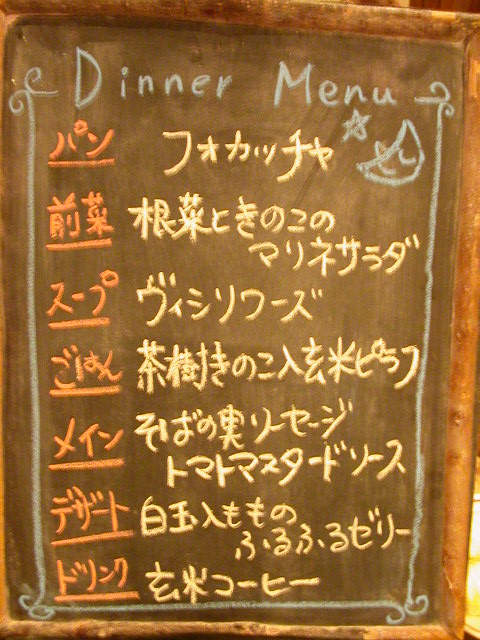 Dinner Menu
パン フォカッチャ
前菜 根菜ときのこの
マリネサラダ
スープ ヴィシソワーズ
ごはん 茶樹きのこ入玄米ピラフ
メイン そばの実ソーセージ
トマトマスタードソース
デザート 白玉入ももの
ふるふるゼリー
ドリンク 玄米コーヒー